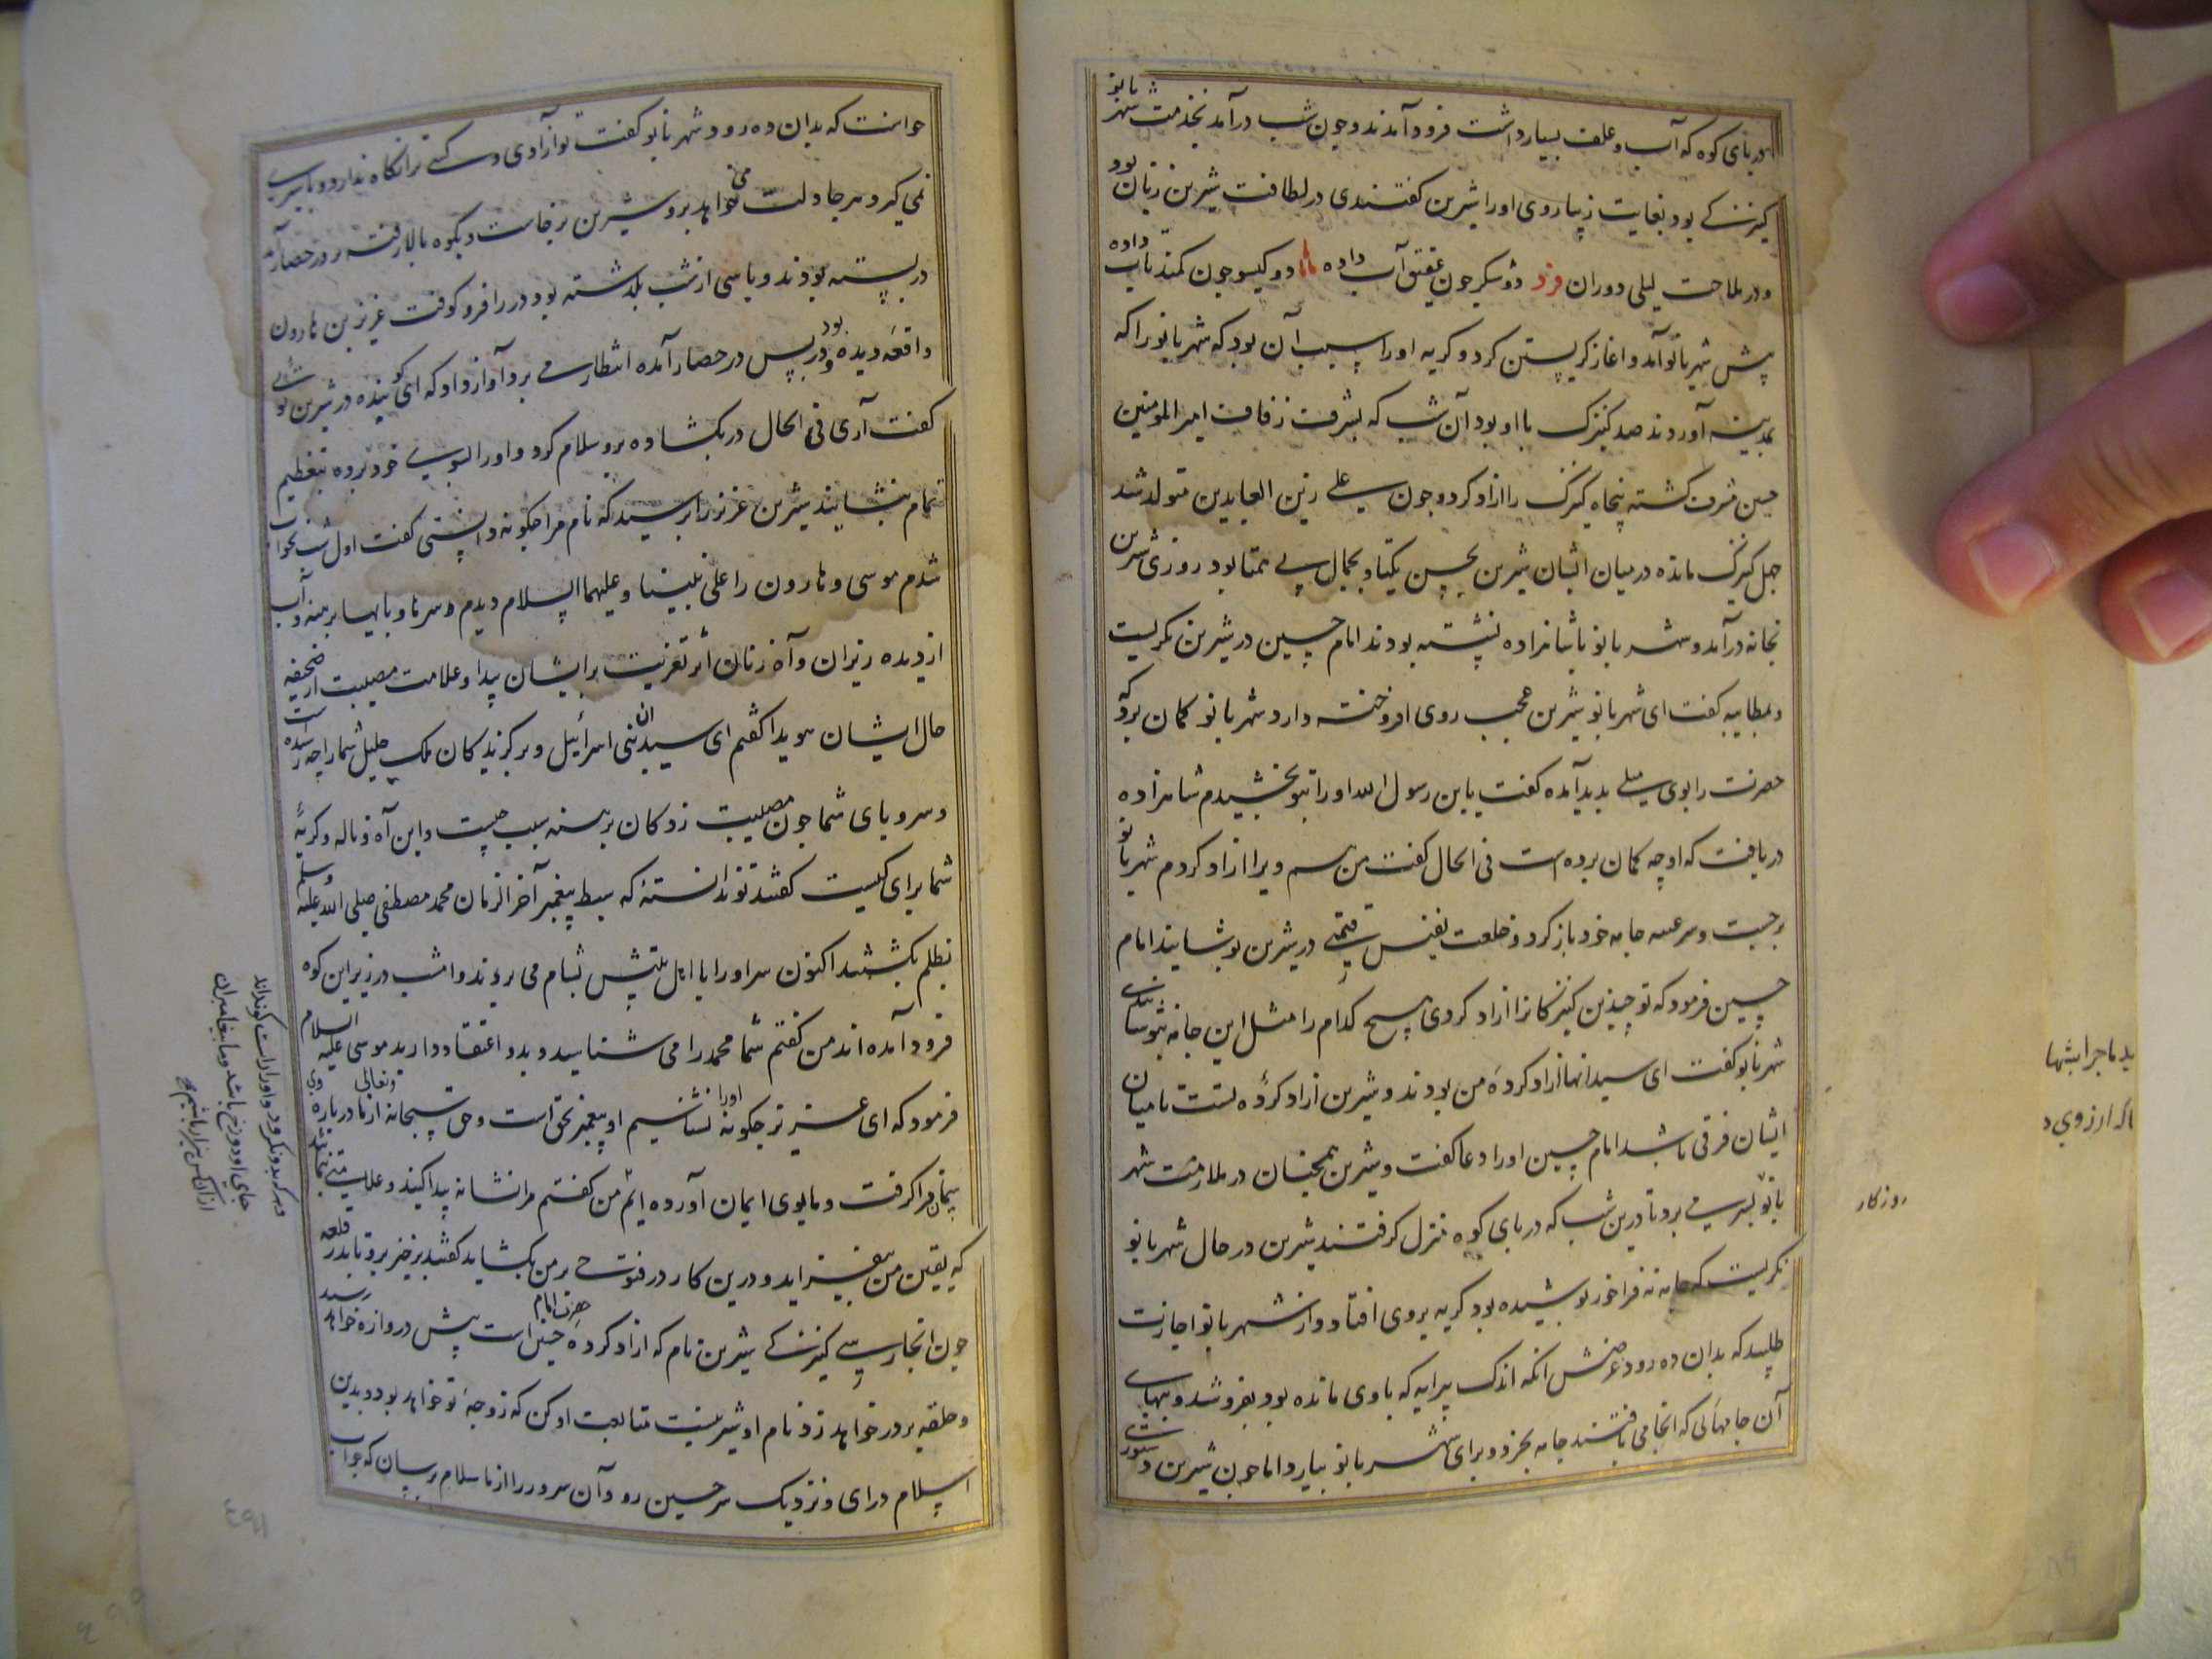 در پای کوه که آب و علف بسیار داشت فرود آمدند و چون شب درآمد بخدمت شهربانو
کنیزکے بود بغایت زیبا روی او را شیرین گفتندی در لطافت شیرین زبان بود
و در ملاحت لیلی دوران فرد دو شکر چون عقیق آب داده دو گیسو چون کمند تاب داده
پیش شهربانو آمد و آغاز گریستن کرد و گریه او را سبب آن بود که شهربانو را که
بمدینه آوردند صد کنیزک با او بود آن شب که بشرف زفاف امیر المؤمنین
حسین مشرف گشته پنجاه کنیزک را آزاد کرد و چون علی زین العابدین متولد شد
چهل کنیزک مانده در میان ایشان شیرین بحسن یکتا و بجمال بی همتا بود روزی شیرین
بخانه درآمد و شهربانو با شاهزاده نشسته بودند امام حسین در شیرین نگریست
و بمطایبه گفت ای شهربانو شیرین عجب روی افروخته دارد شهربانو گمان برد که
حضرت را بوی میلی پدید آمده گفت یا بن رسول الله او را بتو بخشیدم شاهزاده
دریافت که او چه گمان برده است فی الحال گفت من هم ویرا آزاد کردم شهربانو
برجست و سر عیبه جامه خود باز کرد و خلعت نفیس قیمتی در شیرین پوشانید امام
حسین فرمود که تو چندین کنیزکان را آزاد کردی هیچ کدام را مثل این جامه نپوشانیدی
شهربانو گفت ای سید آنها آزاد کرده من بودند و شیرین آزاد کرده تست تا میان
ایشان فرقی باشد امام حسین او را دعا گفت و شیرین همچنان در ملازمت شهر
بانو بسر می برد تا درین شب که در پای کوه منزل گرفتند شیرین در حال شهربانو
نگریست که جامه نه فراخور پوشیده بود گریه بروی افتاد و از شهربانو اجازت
طلبید که بدان ده رود غرضش آنکه اندک پیرایه که با وی مانده بود بفروشد و ببهای
آن جامهائی که آنجا می بافتند جامه بخرد و برای شهربانو بیارد اما چون شیرین دستوری
روزگار
خواست که بدان ده رود شهربانو گفت تو آزادی و کسی ترا نگاه ندارد و باسیری
نمی گیرد هر جا دلت می خواهد برو شیرین برخاست و بکوه بالا رفته بر در حصار آمد
در بسته بودند و پاسی از شب گذشته بود در را فرو کوفت عزیز بن هارون
واقعه دیده بود و در پس در حصار آمده انتظار می برد آواز داد که ای کوبنده در شیرین توئی
گفت آری فی الحال در بگشاده برو سلام کرد و او را بسوی خود برده بتعظیم
تمام بنشانید شیرین عزیز را پرسید که نام مرا چگونه دانستی گفت اول شب بخواب
شدم موسی و هارون را علی نبینا و علیهما السلام دیدم سرها و پایها برهنه و آب
از دیده ریزان و آه زنان اثر تعزیت بر ایشان پیدا و علامت مصیبت از صحیفه
حال ایشان هویدا گفتم ای سیدان بنی اسرائیل و برگزیدگان ملک جلیل شما را چه رسیده است
و سر و پای شما چون مصیبت زدگان برهنه سبب چیست و این آه و ناله و گریهٔ
شما برای کیست گفتند تو ندانستهٔ که سبط پیغمبر آخر الزمان محمد مصطفی صلی الله علیه وسلم
بظلم بکشتند اکنون سر او را با اهل بیتش بشام می برند و امشب در زیر این کوه
فرود آمده اند من گفتم شما محمد را می شناسید و بدو اعتقاد دارید موسی علیه السلام
فرمود که ای عزیز چگونه او را نشناسیم او پیغمبر بحق است و حق سبحانه و تعالی از ما درباره وی
پیمان فرا گرفت و ما بوی ایمان آورده ایم من گفتم مرا نشانه پیدا کنید و علامتی بنمائید
که یقین من بیفزاید و درین کار در فتوحی بر من بگشاید گفتند برخیز برو تا بدر قلعه
چون آنجا رسی کنیزکے شیرین نام که آزاد کرده حضرت امام حسین است پیش دروازه خواهد رسید
و حلقه بر در خواهد زد نام او شیرینست متابعت او کن که زوجهٔ تو خواهد بود و بدین
اسلام درآی و نزدیک سر حسین رو و آن سرور را از ما سلام برسان که جواب